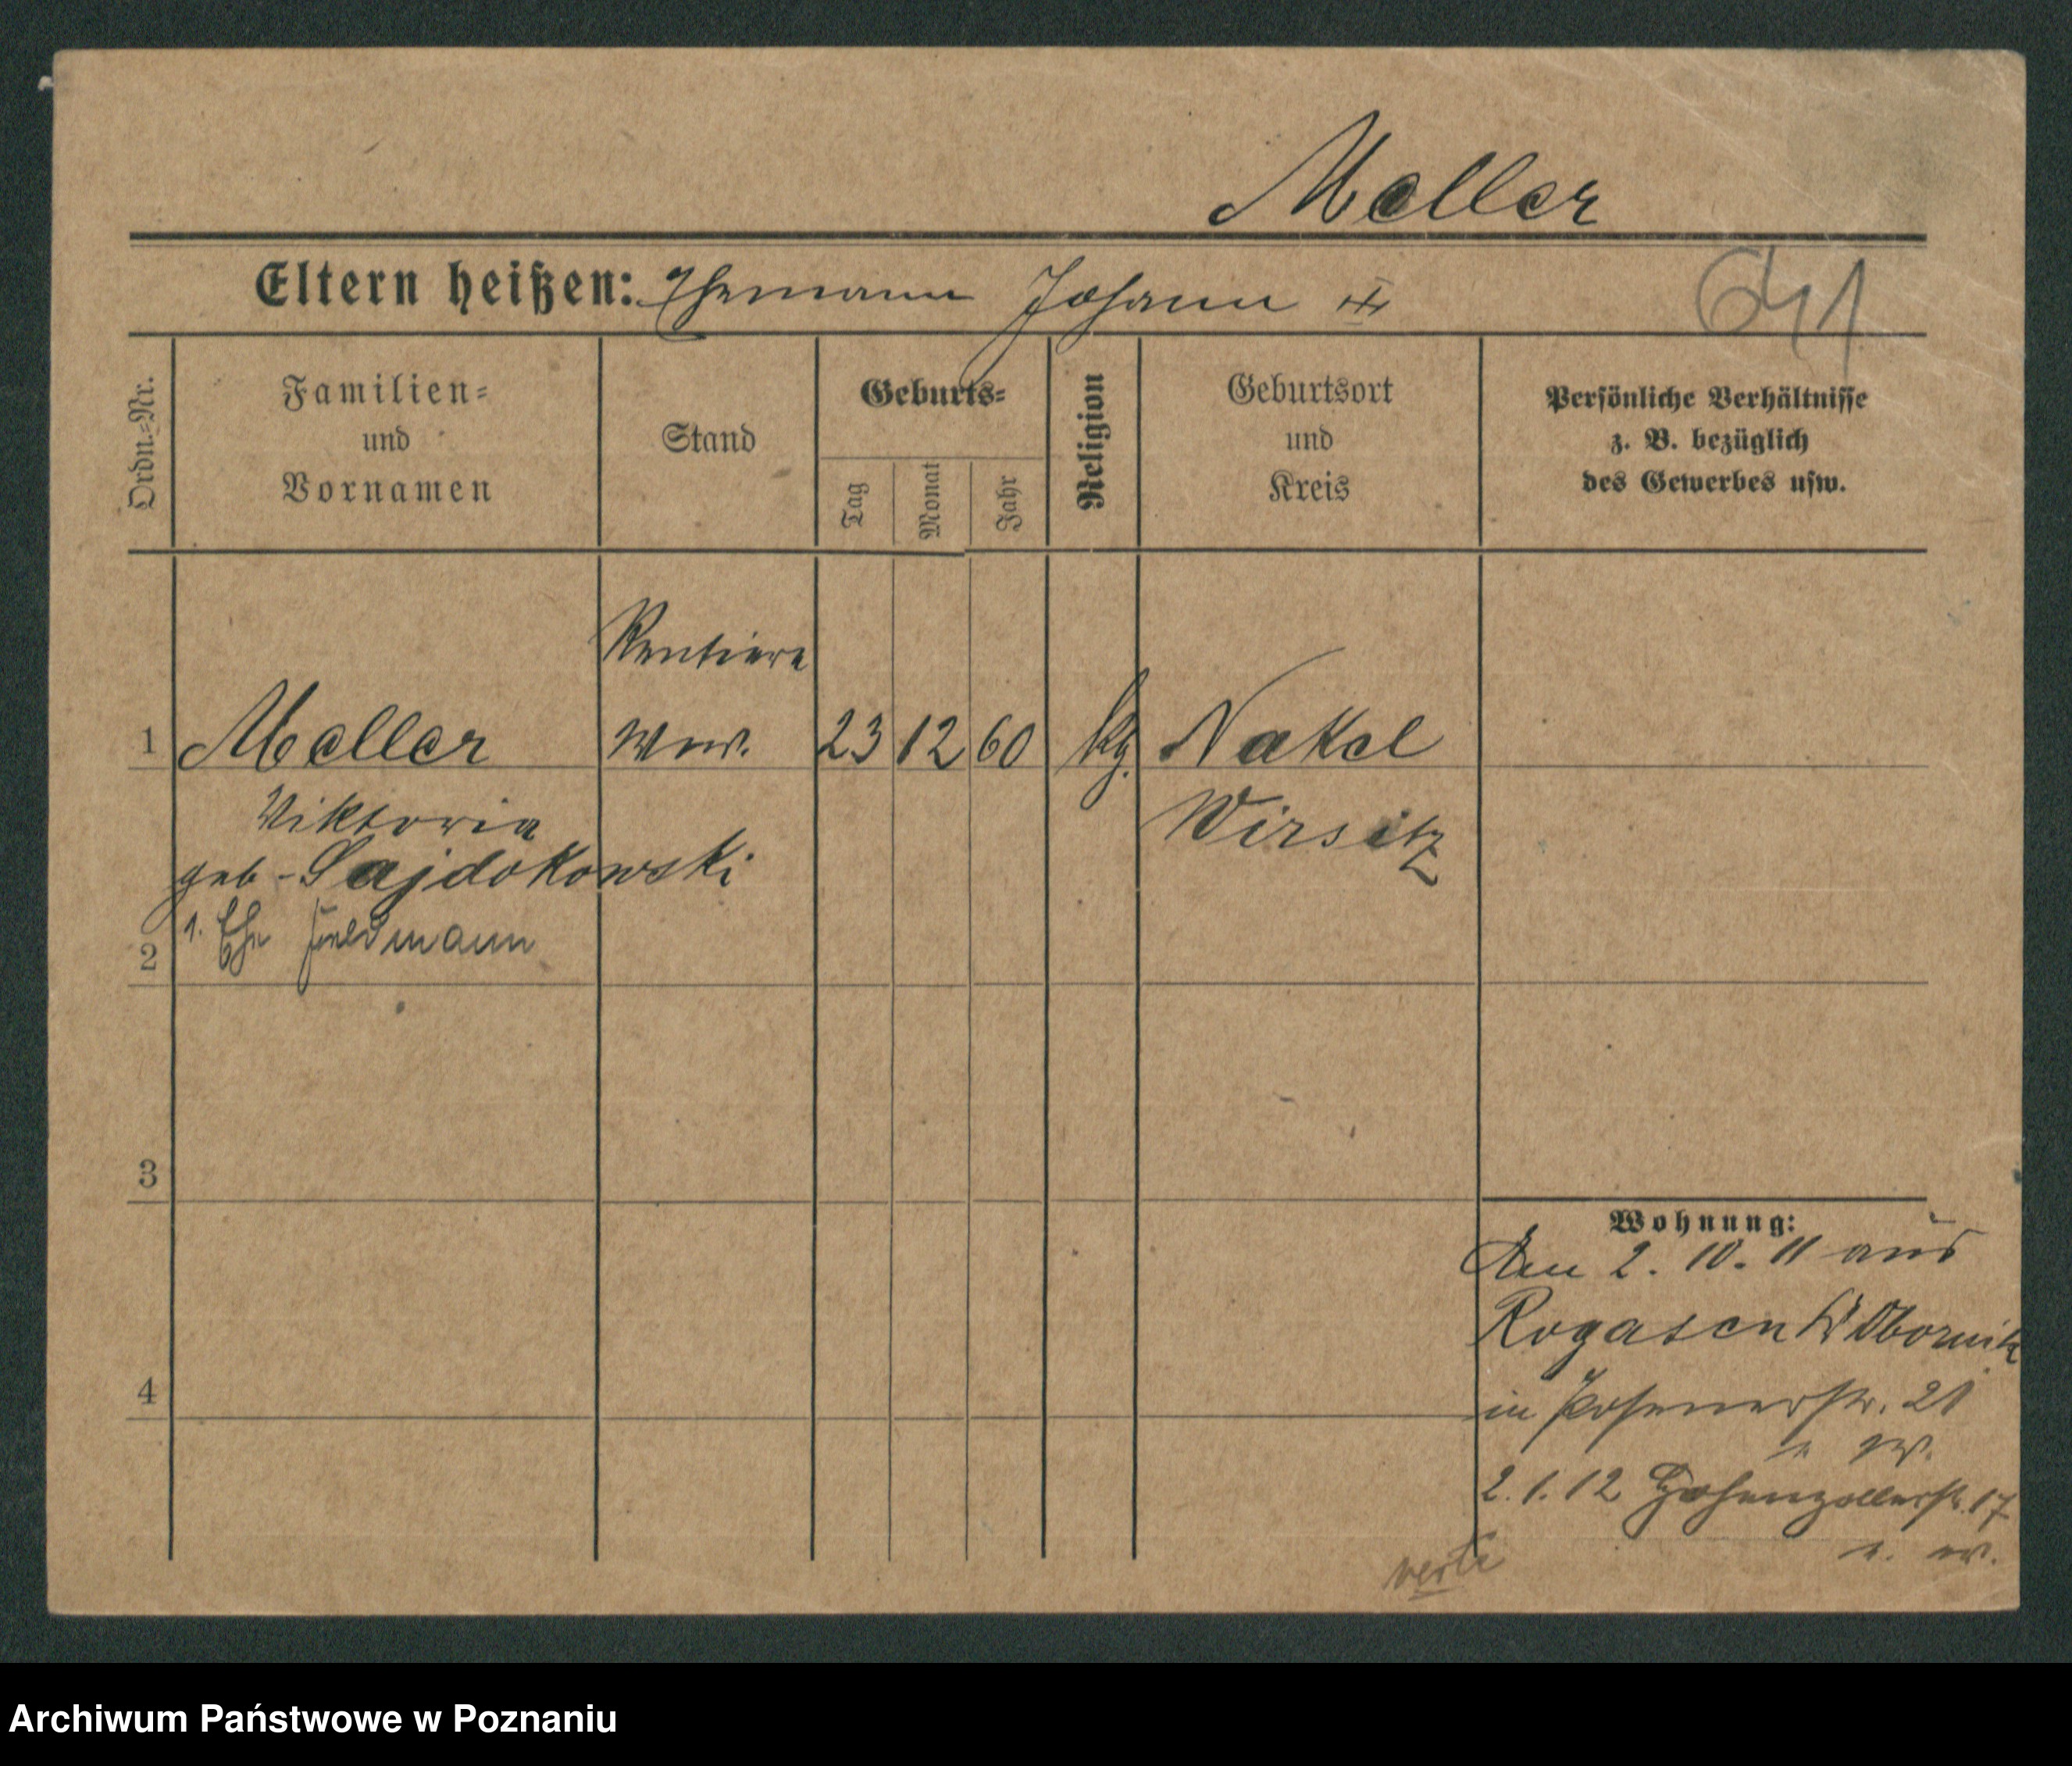 Meller
Eltern heißen: Ehemann Johann
641
Ordn.=Nr.
Familien=
und
Vornamen
Stand
Geburts=
Tag
Monat
Jahr
Religion
Geburtsort
und
Kreis
Persönliche Verhältnisse
z. B. bezüglich
des Gewerbes usw.
Rentiere
1 Meller Wwe. 23 12 60 kg. Nakel
Viktoria Wirsitz
geb. Gajdokowski
1. Ehe Feldmann
2
3
4
Wohnung:
Am 2. 10. 11 aus
Rogasen Obornik
in Posenerstr. 21
2. 1. 12 Hohenzollerstr. 17
verte
Archiwum Państwowe w Poznaniu